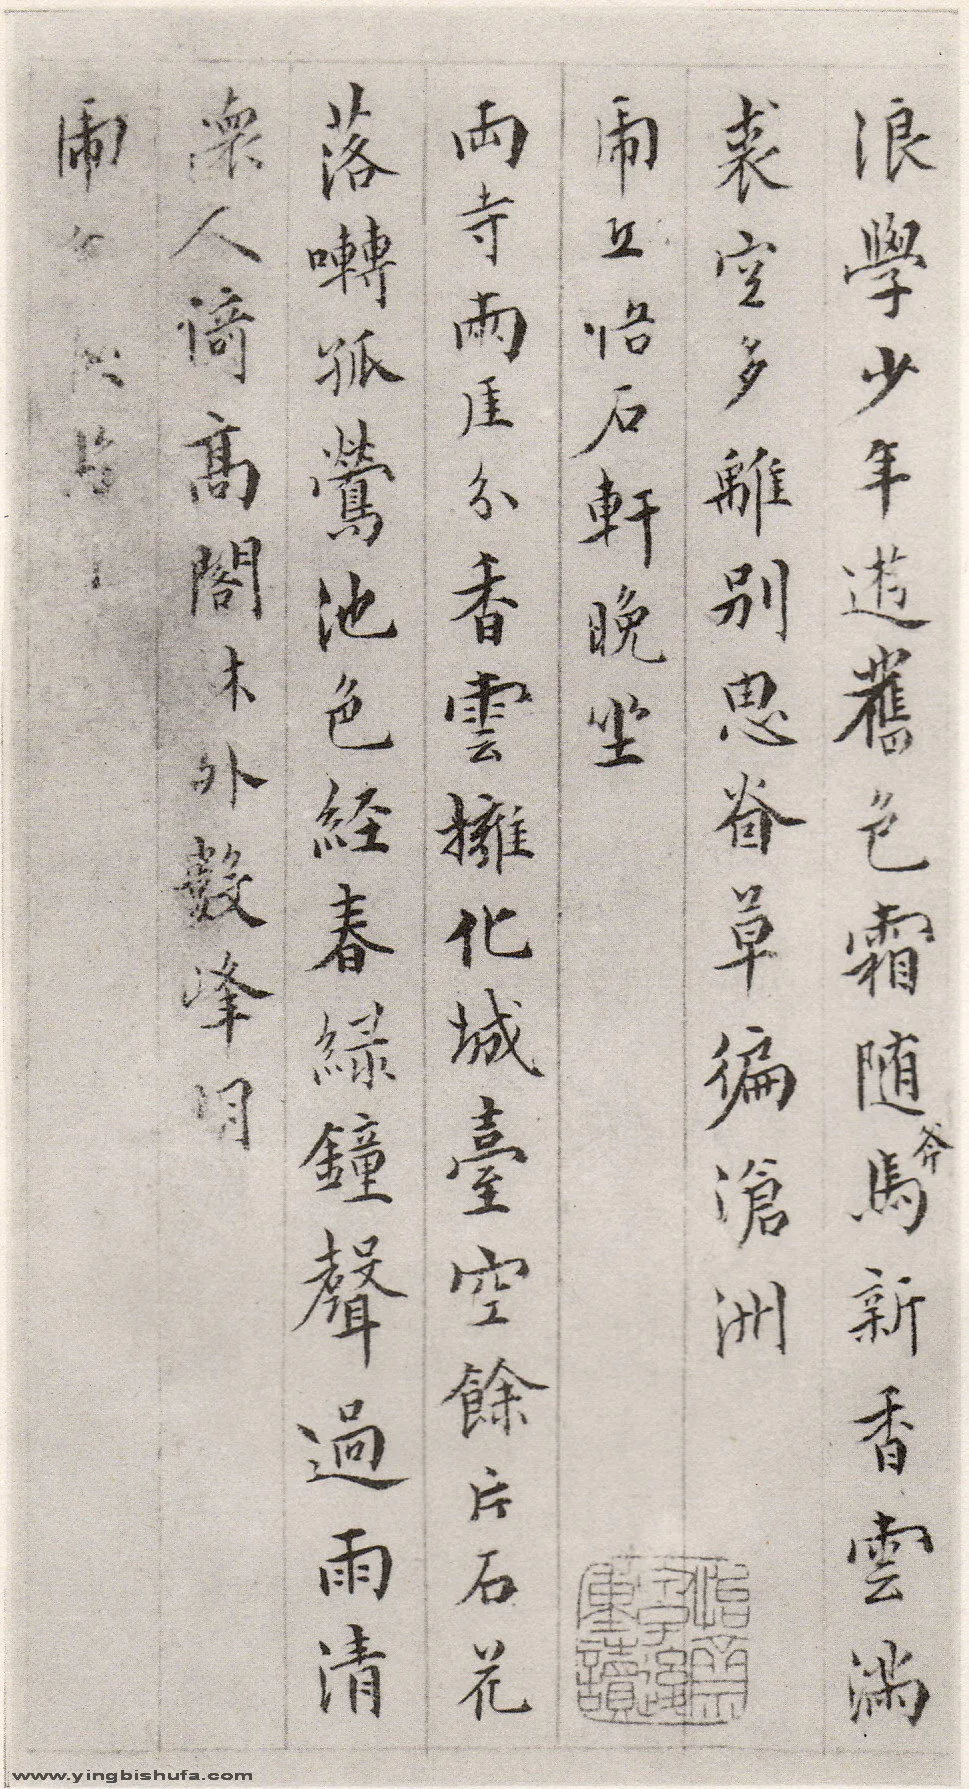 浪學少年遊舊色霜随馬新香雲滿
斧
裘空多離別思眷草徧滄洲
虎丘悟石軒晚坐
兩寺兩厓分香雲擁化城臺空餘片石花
落囀孤鶯池色経春緑鐘聲過雨清
懷人倚高閣木外數峰明
虎
www.yingbishufa.com